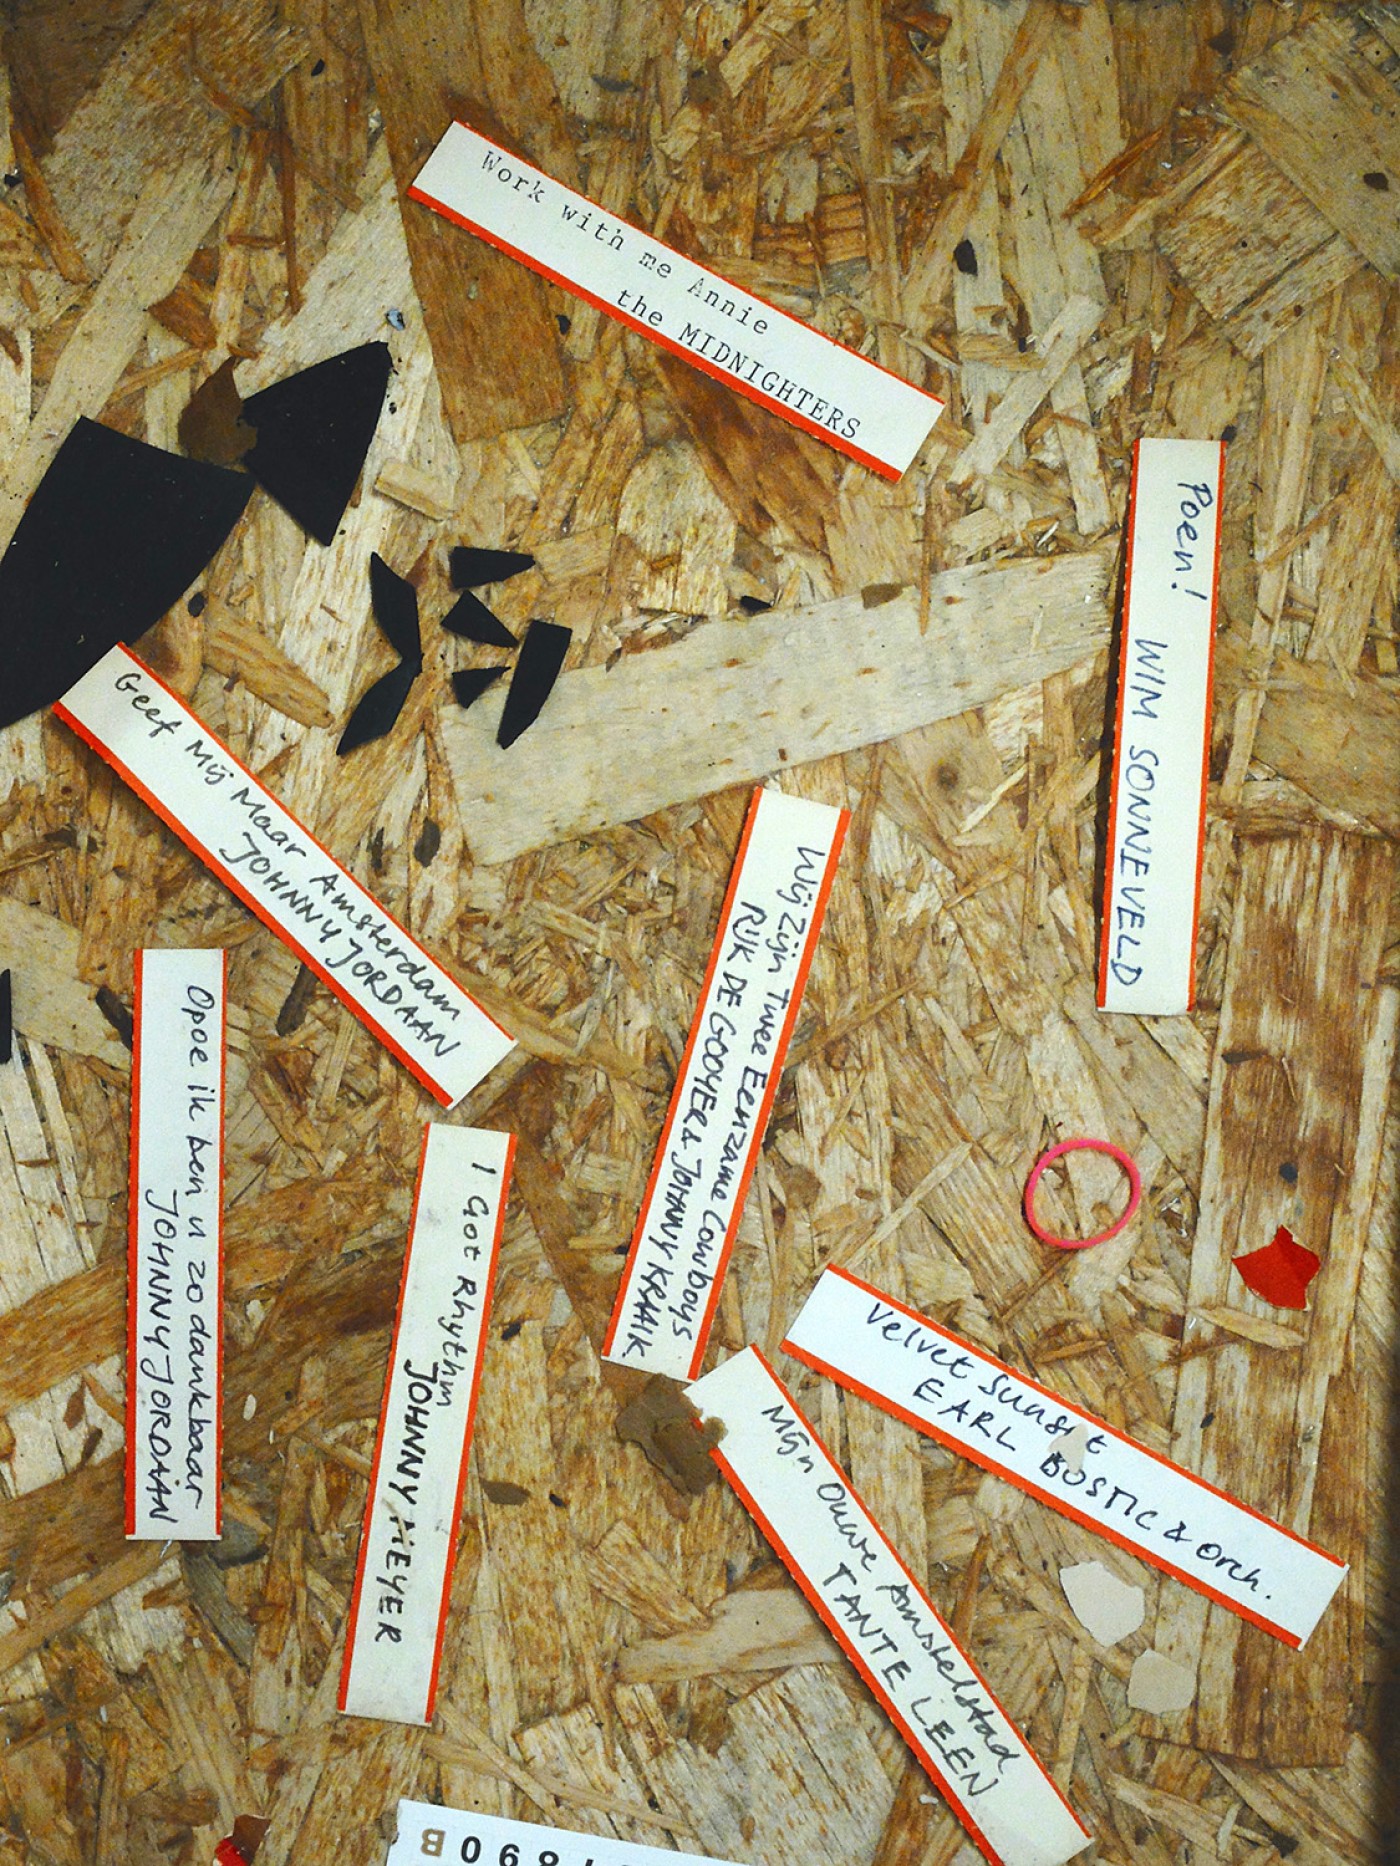 Work with me Annie
the MIDNIGHTERS
Poen! WIM SONNEVELD
Geef Mij Maar Amsterdam
JOHNNY JORDAAN
Wij Zijn Twee Eenzame Cowboys
RIJK DE GOOYER & JOHNNY KRAAIK.
Opoe ik ben u zo dankbaar
JOHNNY JORDAAN
I Got Rhythm
JOHNNY MEYER
Velvet Sunset
EARL BOSTIC & Orch.
Mijn Ouwe Amstelstad
TANTE LEEN
B 0 6 8